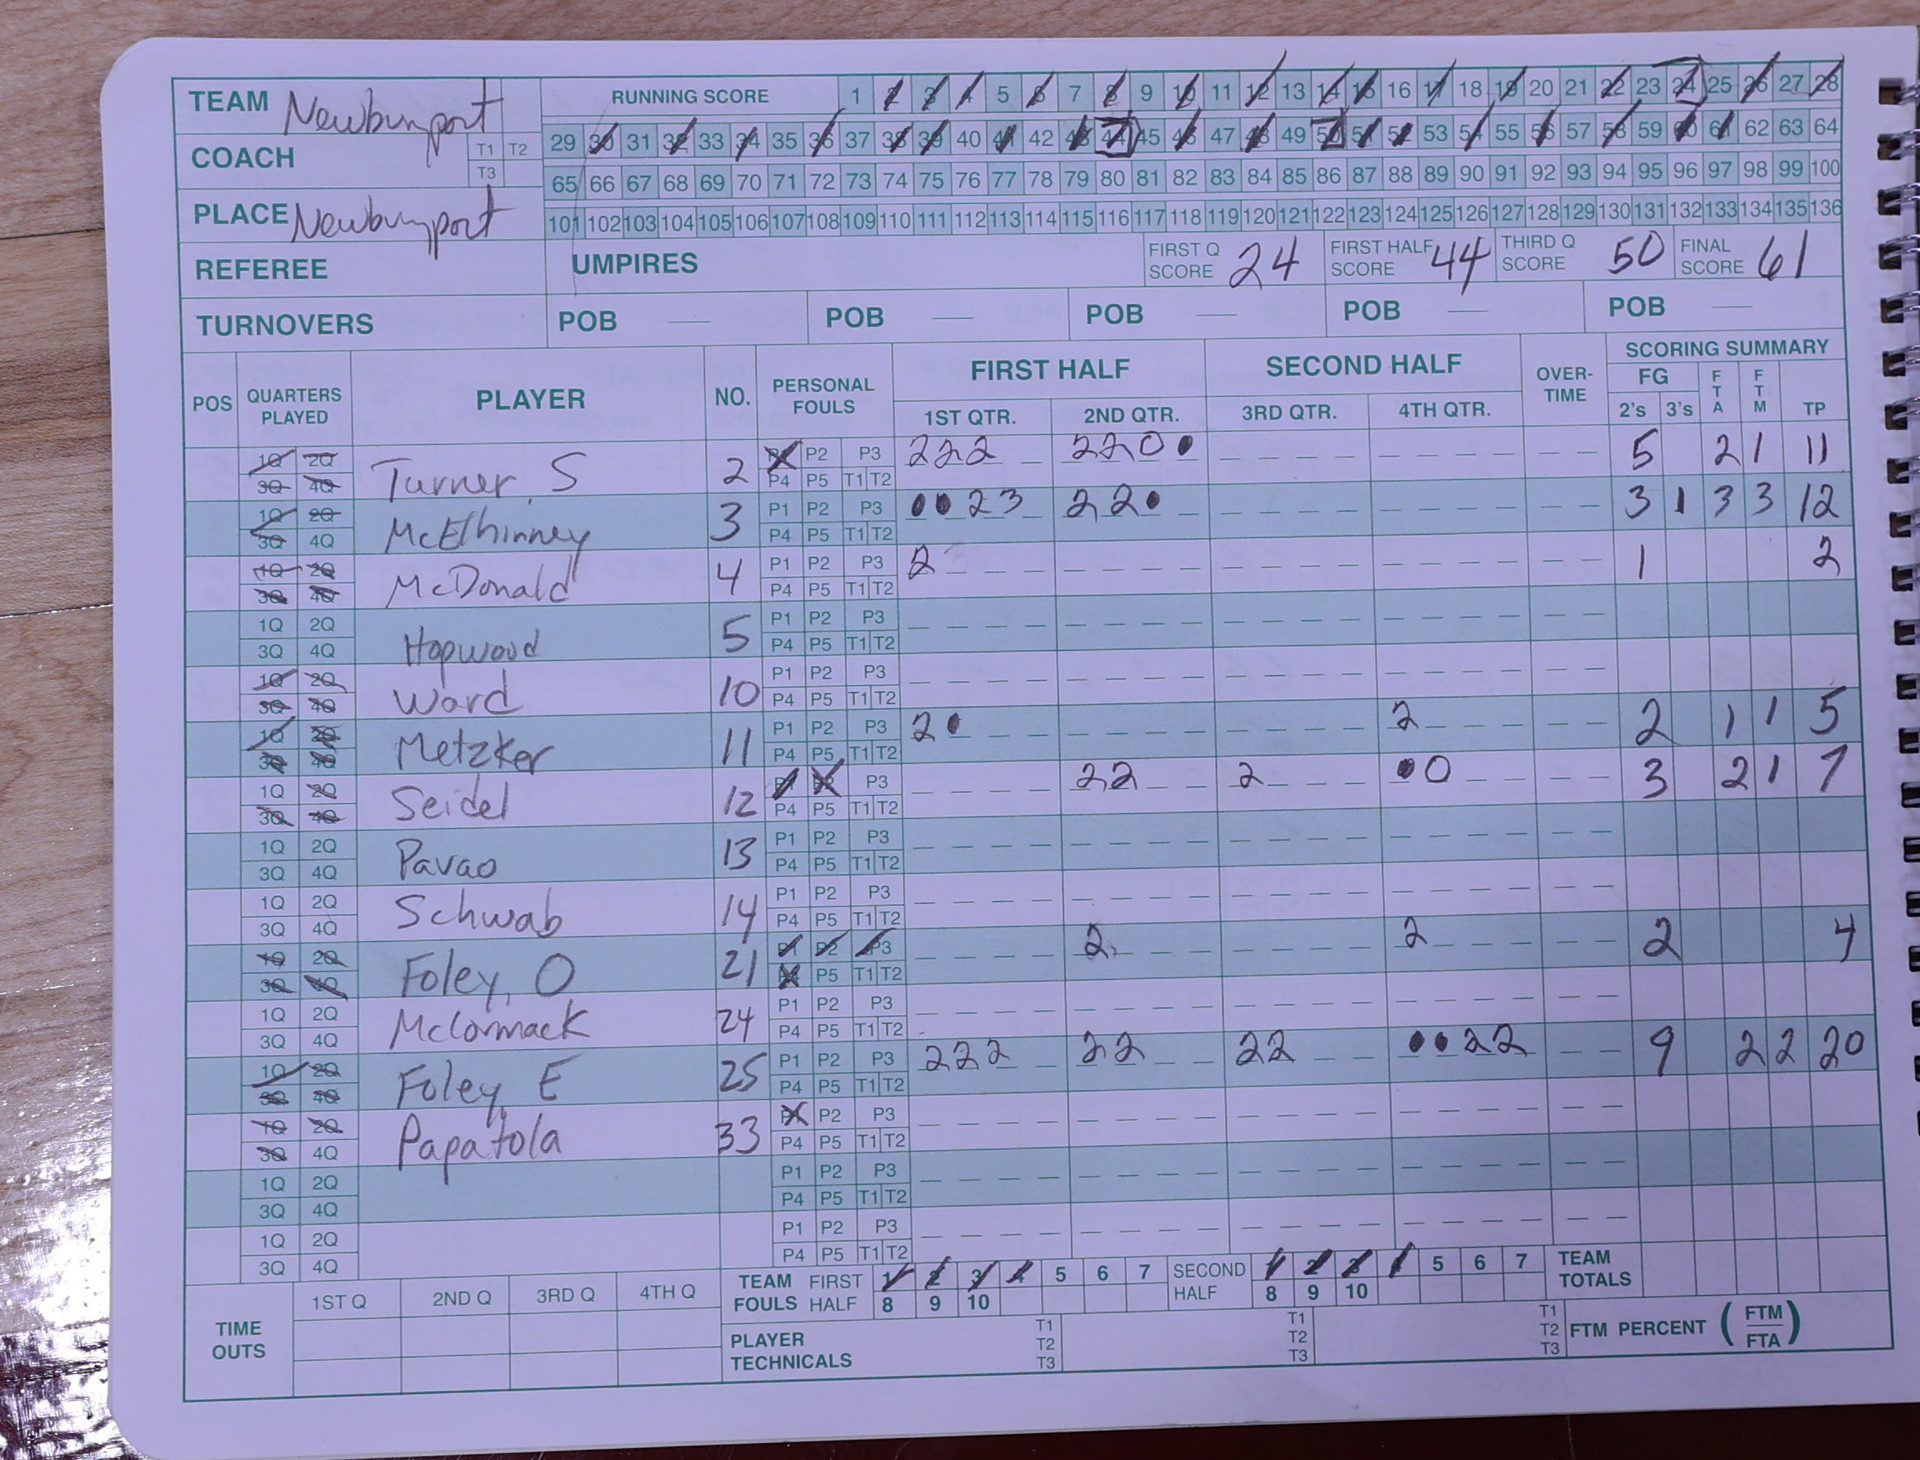 TEAM Newburyport
RUNNING SCORE 1 2 3 4 5 6 7 8 9 10 11 12 13 14 15 16 17 18 19 20 21 22 23 24 25 26 27 28
29 30 31 32 33 34 35 36 37 38 39 40 41 42 43 44 45 46 47 48 49 50 51 52 53 54 55 56 57 58 59 60 61 62 63 64
COACH T1 T2 T3
65 66 67 68 69 70 71 72 73 74 75 76 77 78 79 80 81 82 83 84 85 86 87 88 89 90 91 92 93 94 95 96 97 98 99 100
PLACE Newburyport
101 102 103 104 105 106 107 108 109 110 111 112 113 114 115 116 117 118 119 120 121 122 123 124 125 126 127 128 129 130 131 132 133 134 135 136
REFEREE UMPIRES FIRST Q SCORE 24 FIRST HALF SCORE 44 THIRD Q SCORE 50 FINAL SCORE 61
TURNOVERS POB — POB — POB — POB — POB —
POS QUARTERS PLAYED PLAYER NO. PERSONAL FOULS FIRST HALF SECOND HALF OVER-TIME SCORING SUMMARY
1ST QTR. 2ND QTR. 3RD QTR. 4TH QTR. FG 2's 3's FTA FTM TP
1Q 2Q Turner, S 2 P1 P2 P3 222 220• 5 2 1 11
3Q 4Q P4 P5 T1 T2
1Q 2Q McElhinney 3 P1 P2 P3 ••23 22• 3 1 3 3 12
3Q 4Q P4 P5 T1 T2
1Q 2Q McDonald 4 P1 P2 P3 2 1 2
3Q 4Q P4 P5 T1 T2
1Q 2Q Hopwood 5 P1 P2 P3
3Q 4Q P4 P5 T1 T2
1Q 2Q Ward 10 P1 P2 P3
3Q 4Q P4 P5 T1 T2
1Q 2Q Metzker 11 P1 P2 P3 2• 2 2 1 1 5
3Q 4Q P4 P5 T1 T2
1Q 2Q Seidel 12 P1 P2 P3 22 2 •0 3 2 1 7
3Q 4Q P4 P5 T1 T2
1Q 2Q Pavao 13 P1 P2 P3
3Q 4Q P4 P5 T1 T2
1Q 2Q Schwab 14 P1 P2 P3
3Q 4Q P4 P5 T1 T2
1Q 2Q Foley, O 21 P1 P2 P3 2 2 2 4
3Q 4Q P4 P5 T1 T2
1Q 2Q McCormack 24 P1 P2 P3
3Q 4Q P4 P5 T1 T2
1Q 2Q Foley, E 25 P1 P2 P3 222 22 22 ••22 9 2 2 20
3Q 4Q P4 P5 T1 T2
1Q 2Q Papatola 33 P1 P2 P3
3Q 4Q P4 P5 T1 T2
1Q 2Q P1 P2 P3
3Q 4Q P4 P5 T1 T2
1Q 2Q P1 P2 P3
3Q 4Q P4 P5 T1 T2
TIME OUTS 1ST Q 2ND Q 3RD Q 4TH Q
TEAM FOULS FIRST HALF 1 2 3 4 5 6 7 8 9 10 SECOND HALF 1 2 3 4 5 6 7 8 9 10 TEAM TOTALS
PLAYER TECHNICALS T1 T2 T3 T1 T2 T3 T1 T2 T3 FTM PERCENT (FTM/FTA)